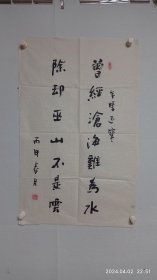 曾經滄海難為水
除却巫山不是雲
丙申春月
2024.04.02 22:51